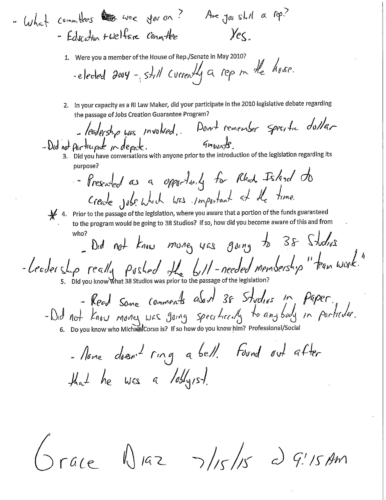 - What committees were you on? Are you still a rep?
- Education + welfare committee Yes.
1. Were you a member of the House of Rep./Senate in May 2010?
- elected 2004 - still currently a rep in the house.
2. In your capacity as a RI Law Maker, did your participate in the 2010 legislative debate regarding
the passage of Jobs Creation Guarantee Program?
- leadership was involved. Don't remember specific dollar
amounts.
- Did not participate in debate.
3. Did you have conversations with anyone prior to the introduction of the legislation regarding its
purpose?
- Presented as a opportunity for Rhode Island to
create jobs which was important at the time.
* 4. Prior to the passage of the legislation, where you aware that a portion of the funds guaranteed
to the program would be going to 38 Studios? If so, how did you become aware of this and from
who?
- Did not know money was going to 38 Studios
- Leadership really pushed the bill - needed membership "team work."
5. Did you know what 38 Studios was prior to the passage of the legislation?
- Read some comments about 38 Studios in paper.
- Did not know money was going specifically to anybody in particular.
6. Do you know who Michael Corso is? If so how do you know him? Professional/Social
- Name doesn't ring a bell. Found out after
that he was a lobbyist.
Grace Diaz 7/15/15 @ 9:15 AM